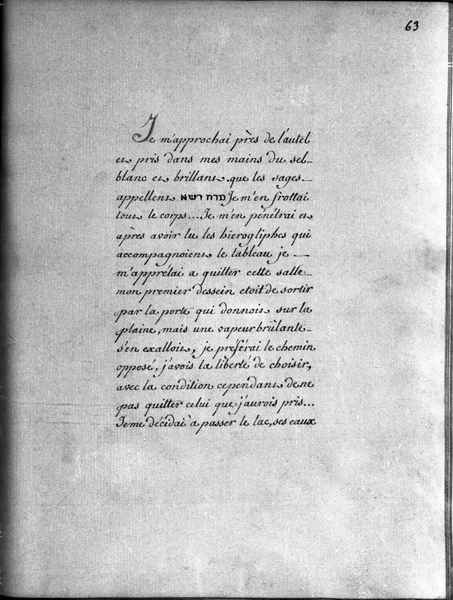 63
Je m'approchai près de l'autel
et pris dans mes mains du sel
blanc et brillant que les sages
appellent Je m'en frottai
tout le corps...Je m'en pénétrai et
après avoir lu les hierogliphes qui
accompagnoient le tableau je
m'apprêtai a quitter cette salle
mon premier dessein etoit de sortir
par la porte qui donnoit sur la
plaine, mais une vapeur brûlante
s'en exalloit, je préférai le chemin
opposé, j'avois la liberté de choisir,
avec la condition cependant de ne
pas quitter celui que j'aurois pris...
Je me décidai à passer le lac, ses eaux